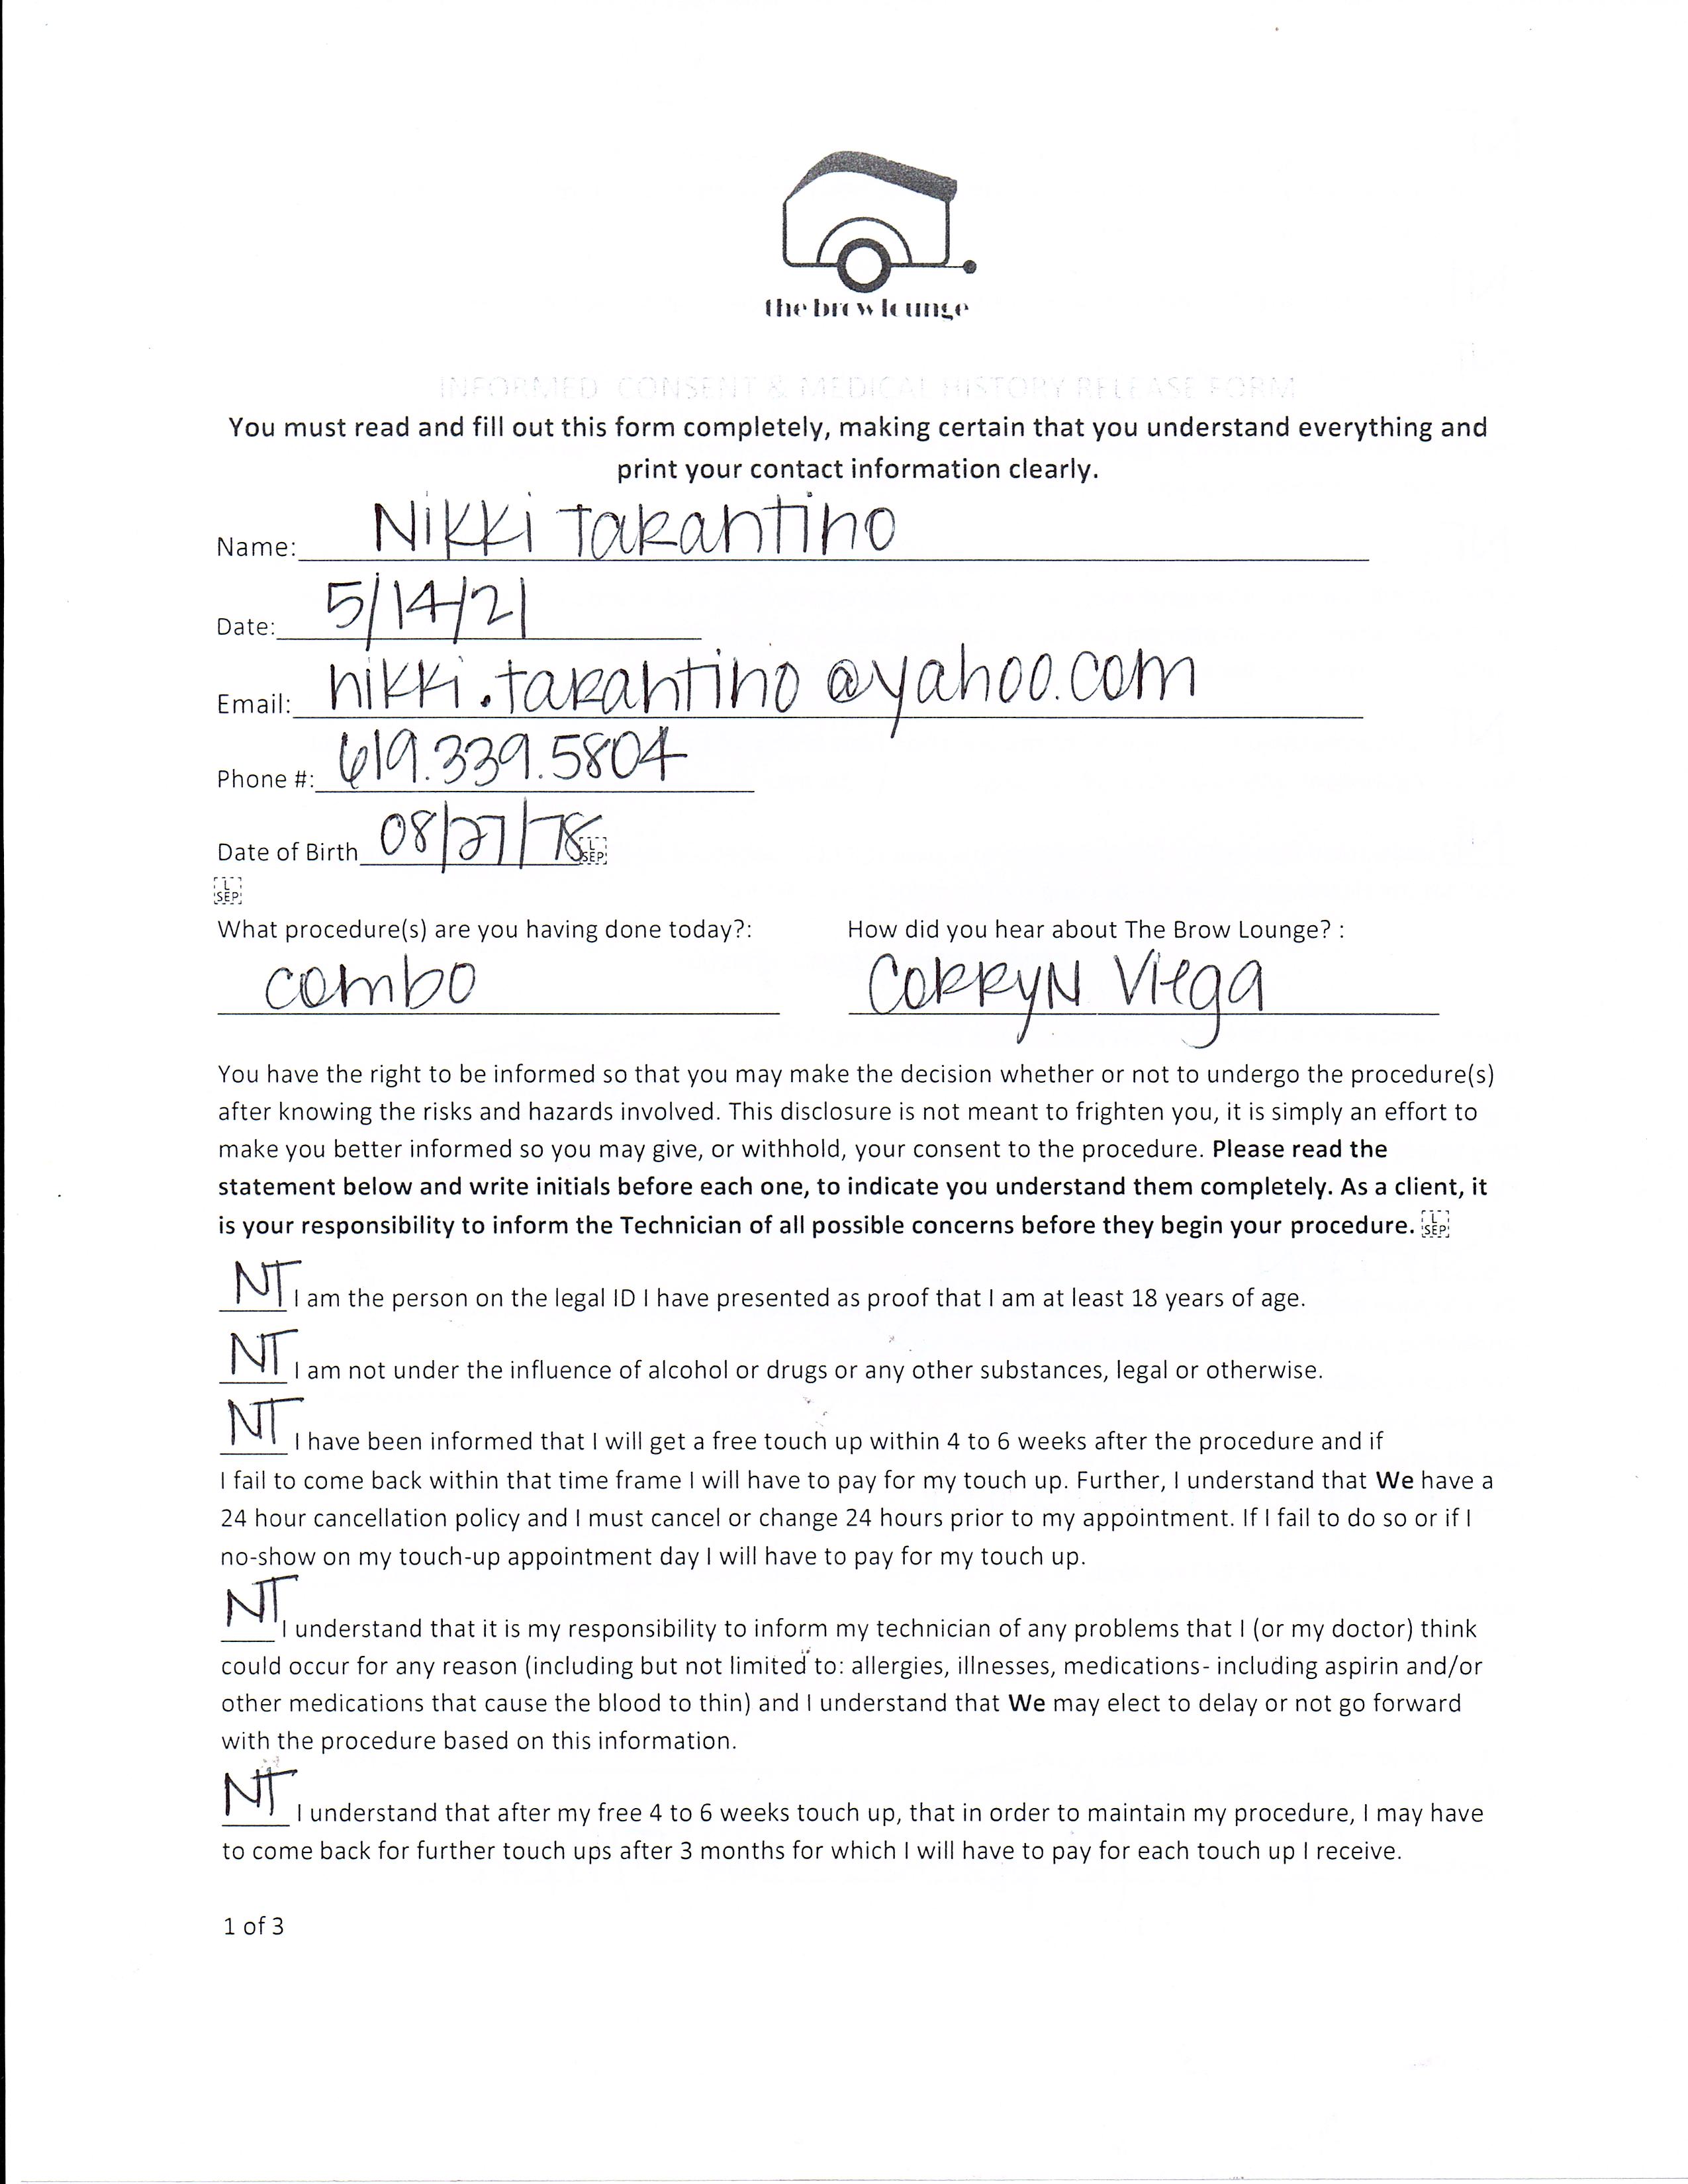 the brow lounge
INFORMED CONSENT & MEDICAL HISTORY RELEASE FORM
You must read and fill out this form completely, making certain that you understand everything and
print your contact information clearly.
Name: Nikki Tarantino
Date: 5/14/21
Email: nikki.tarantino@yahoo.com
Phone #: 619.339.5804
Date of Birth 08/27/78 L SEP
L SEP
What procedure(s) are you having done today?: How did you hear about The Brow Lounge? :
combo CORRYN Viega
You have the right to be informed so that you may make the decision whether or not to undergo the procedure(s)
after knowing the risks and hazards involved. This disclosure is not meant to frighten you, it is simply an effort to
make you better informed so you may give, or withhold, your consent to the procedure. Please read the
statement below and write initials before each one, to indicate you understand them completely. As a client, it
is your responsibility to inform the Technician of all possible concerns before they begin your procedure. L SEP
NT I am the person on the legal ID I have presented as proof that I am at least 18 years of age.
NT I am not under the influence of alcohol or drugs or any other substances, legal or otherwise.
NT I have been informed that I will get a free touch up within 4 to 6 weeks after the procedure and if
I fail to come back within that time frame I will have to pay for my touch up. Further, I understand that We have a
24 hour cancellation policy and I must cancel or change 24 hours prior to my appointment. If I fail to do so or if I
no-show on my touch-up appointment day I will have to pay for my touch up.
NT I understand that it is my responsibility to inform my technician of any problems that I (or my doctor) think
could occur for any reason (including but not limited to: allergies, illnesses, medications- including aspirin and/or
other medications that cause the blood to thin) and I understand that We may elect to delay or not go forward
with the procedure based on this information.
NT I understand that after my free 4 to 6 weeks touch up, that in order to maintain my procedure, I may have
to come back for further touch ups after 3 months for which I will have to pay for each touch up I receive.
1 of 3